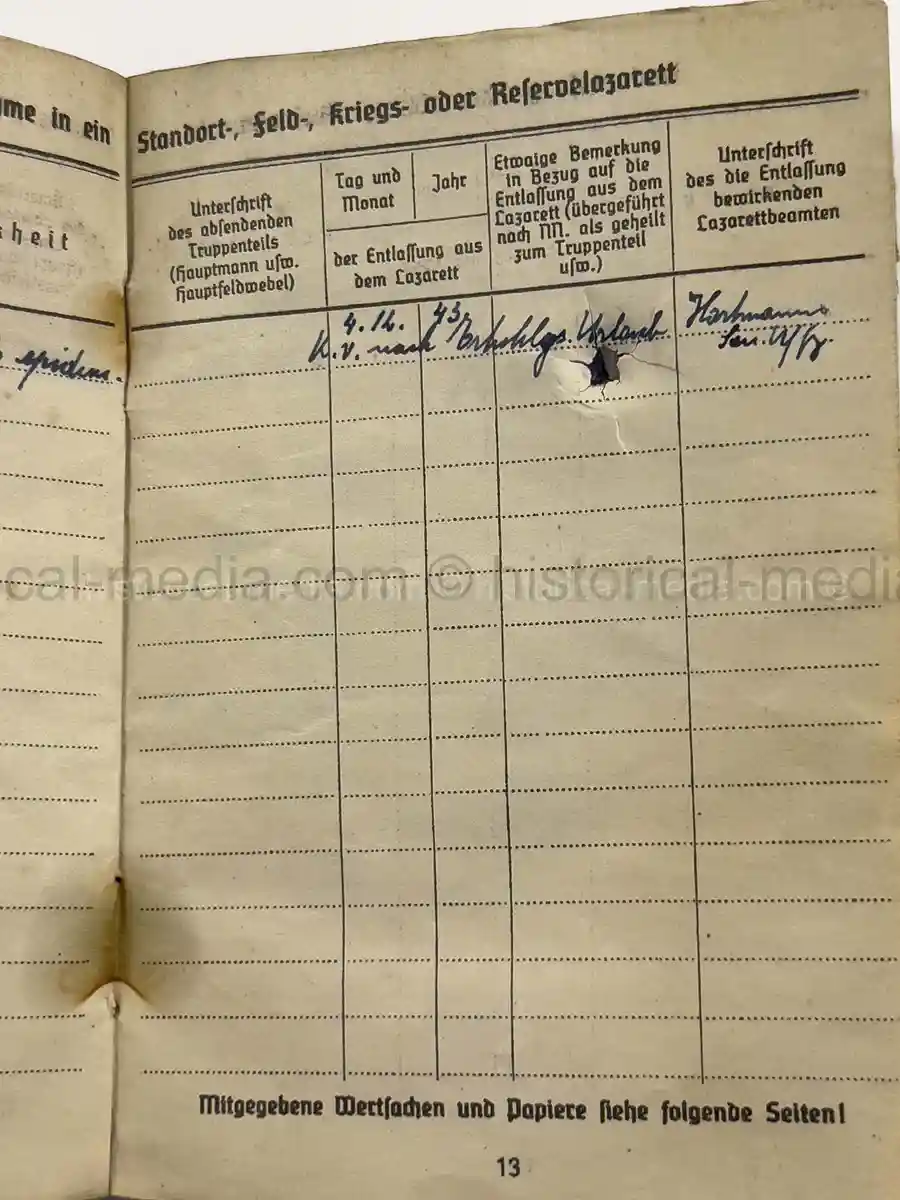 me in ein
Standort-, Feld-, Kriegs- oder Reservelazarett
heit
Unterschrift
des absendenden
Truppenteils
(Hauptmann usw.
Hauptfeldwebel)
Tag und
Monat
Jahr
der Entlassung aus
dem Lazarett
Etwaige Bemerkung
in Bezug auf die
Entlassung aus dem
Lazarett (übergeführt
nach NN. als geheilt
zum Truppenteil
usw.)
Unterschrift
des die Entlassung
bewirkenden
Lazarettbeamten
epidem.
4.12. 43.
K.v. nach Erholgs. Urlaub
Hartmann
San. Uffz.
cal-media.com © historical-media
Mitgegebene Wertsachen und Papiere siehe folgende Seiten!
13